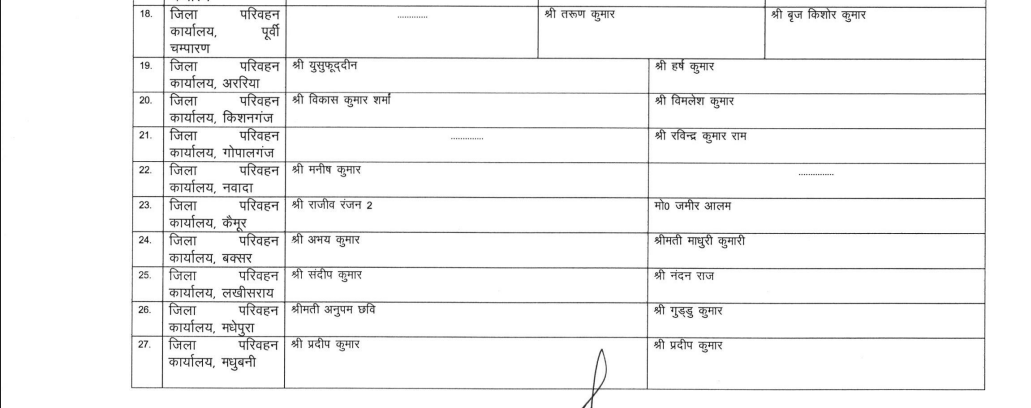 18. जिला परिवहन ............. श्री तरूण कुमार श्री बृज किशोर कुमार
कार्यालय, पूर्वी
चम्पारण
19. जिला परिवहन श्री युसुफूद्दीन श्री हर्ष कुमार
कार्यालय, अररिया
20. जिला परिवहन श्री विकास कुमार शर्मा श्री विमलेश कुमार
कार्यालय, किशनगंज
21. जिला परिवहन .............. श्री रविन्द्र कुमार राम
कार्यालय, गोपालगंज
22. जिला परिवहन श्री मनीष कुमार ...............
कार्यालय, नवादा
23. जिला परिवहन श्री राजीव रंजन 2 मो0 जमीर आलम
कार्यालय, कैमूर
24. जिला परिवहन श्री अभय कुमार श्रीमती माधुरी कुमारी
कार्यालय, बक्सर
25. जिला परिवहन श्री संदीप कुमार श्री नंदन राज
कार्यालय, लखीसराय
26. जिला परिवहन श्रीमती अनुपम छवि श्री गुड्डु कुमार
कार्यालय, मधेपुरा
27. जिला परिवहन श्री प्रदीप कुमार श्री प्रदीप कुमार
कार्यालय, मधुबनी